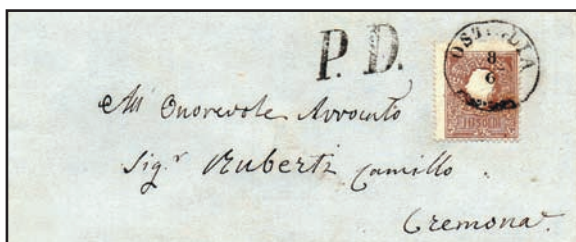 P. D.
OSTIGLIA
8
6
10 SOLDI
All' Onorevole Avvocato
Sig.r Ruberti Camillo
Cremona